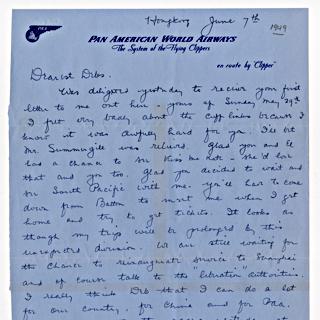 PAA
Hongkong June 7th
1949
PAN AMERICAN WORLD AIRWAYS
The System of the Flying Clippers
en route by "Clipper"
Dearest Dibs.
Was delighted yesterday to receive your first
letter to me out here - yours of Sunday May 29th
I felt very badly about the cuff links because I
know it was awfully hard for you. I'll bet
Mr. was relieved. Glad you and El
had a chance to see Kiss Me Kate - she'd love
that and you too. Glad you decided to wait and
see South Pacific with me. You'll have to come
down from Boston to meet me when I get
home and try to get tickets. It looks as
though my trip will be prolonged by this
unexpected division. We are still waiting for
the chance to reinaugurate service to Shanghai
and of course talk to the "liberation" authorities.
I really think Dib that I can do a lot
for our country, for China and for PAA.